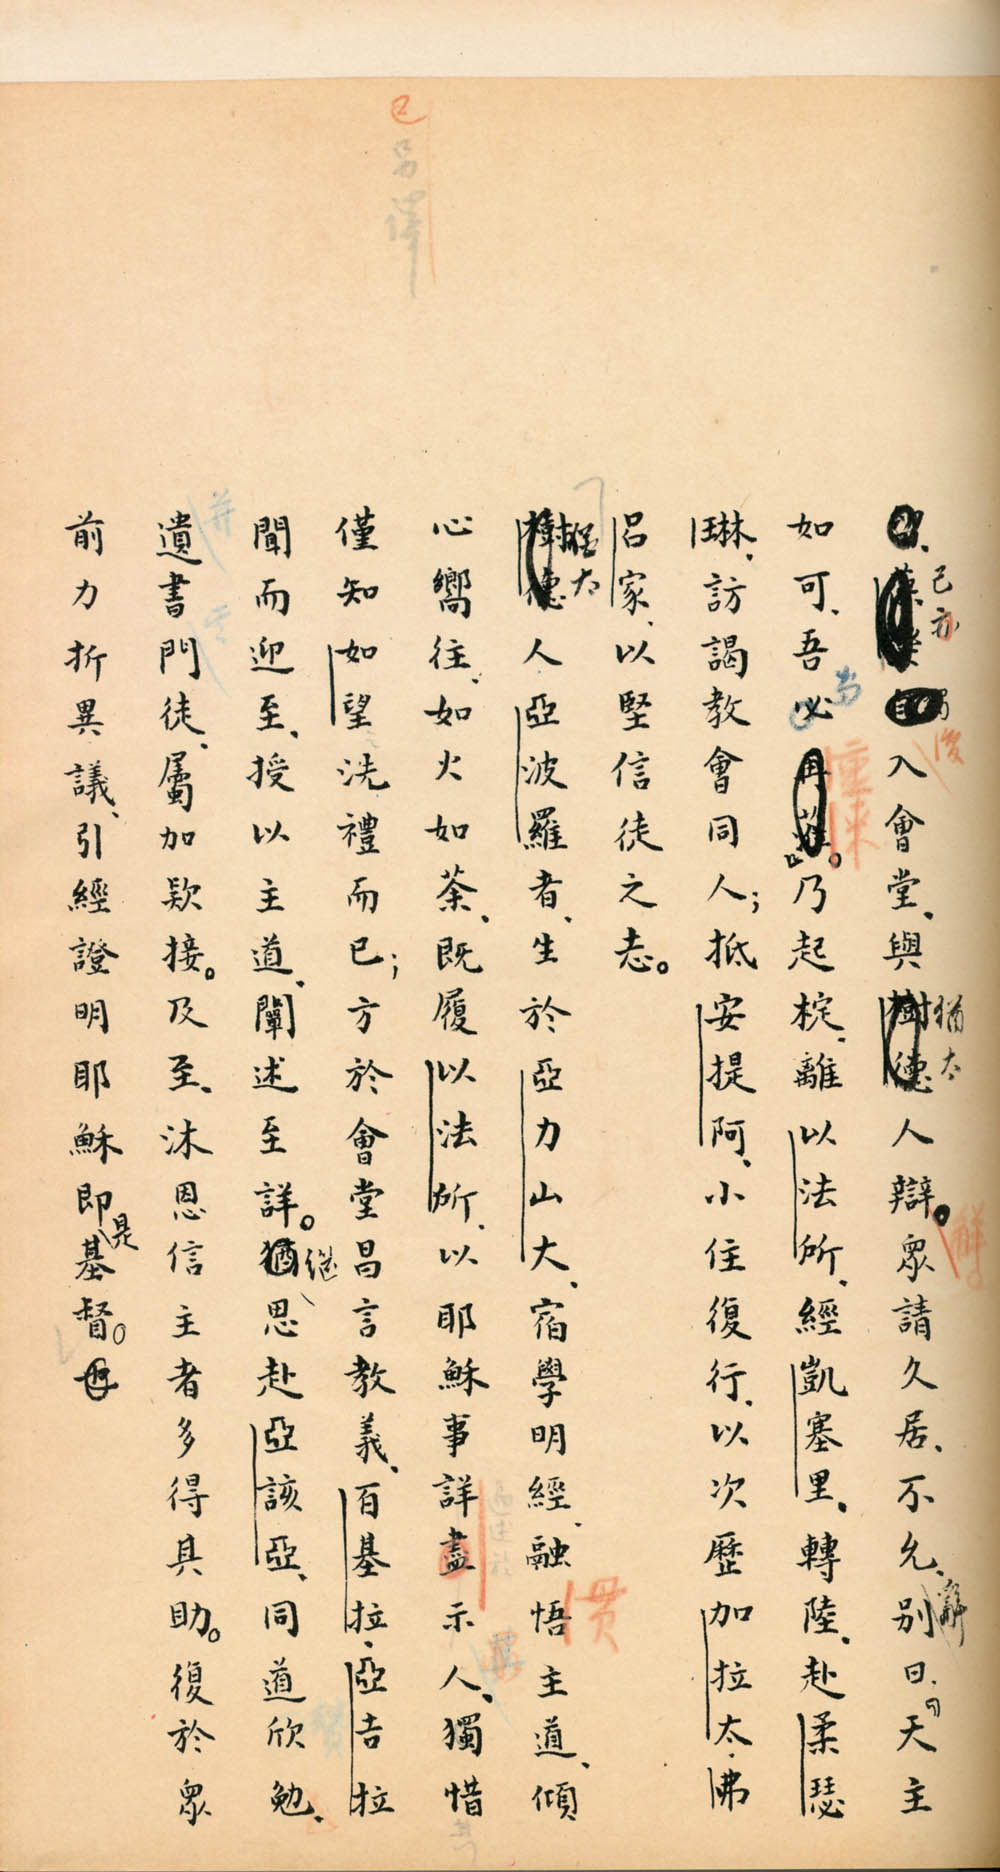 已另譯
入會堂、與猶太人辯。眾請久居、不允、辭別曰、天主
如可、吾必重來。乃起椗、離以法所、經凱塞里、轉陸、赴柔瑟
琳、訪謁教會同人；抵安提阿、小住復行、以次歷加拉太、弗
呂家、以堅信徒之志。
猶太人亞波羅者、生於亞力山大、宿學明經、融悟主道、傾
心嚮往、如火如荼、既履以法所、以耶穌事詳盡示人、獨惜
僅知如望洗禮而已；方於會堂昌言教義、百基拉、亞吉拉
聞而迎至、授以主道、闡述至詳。繼思赴亞該亞、同道欣勉、
遺書門徒、屬加款接。及至、沐恩信主者多得其助。復於眾
前力折異議、引經證明耶穌即是基督。